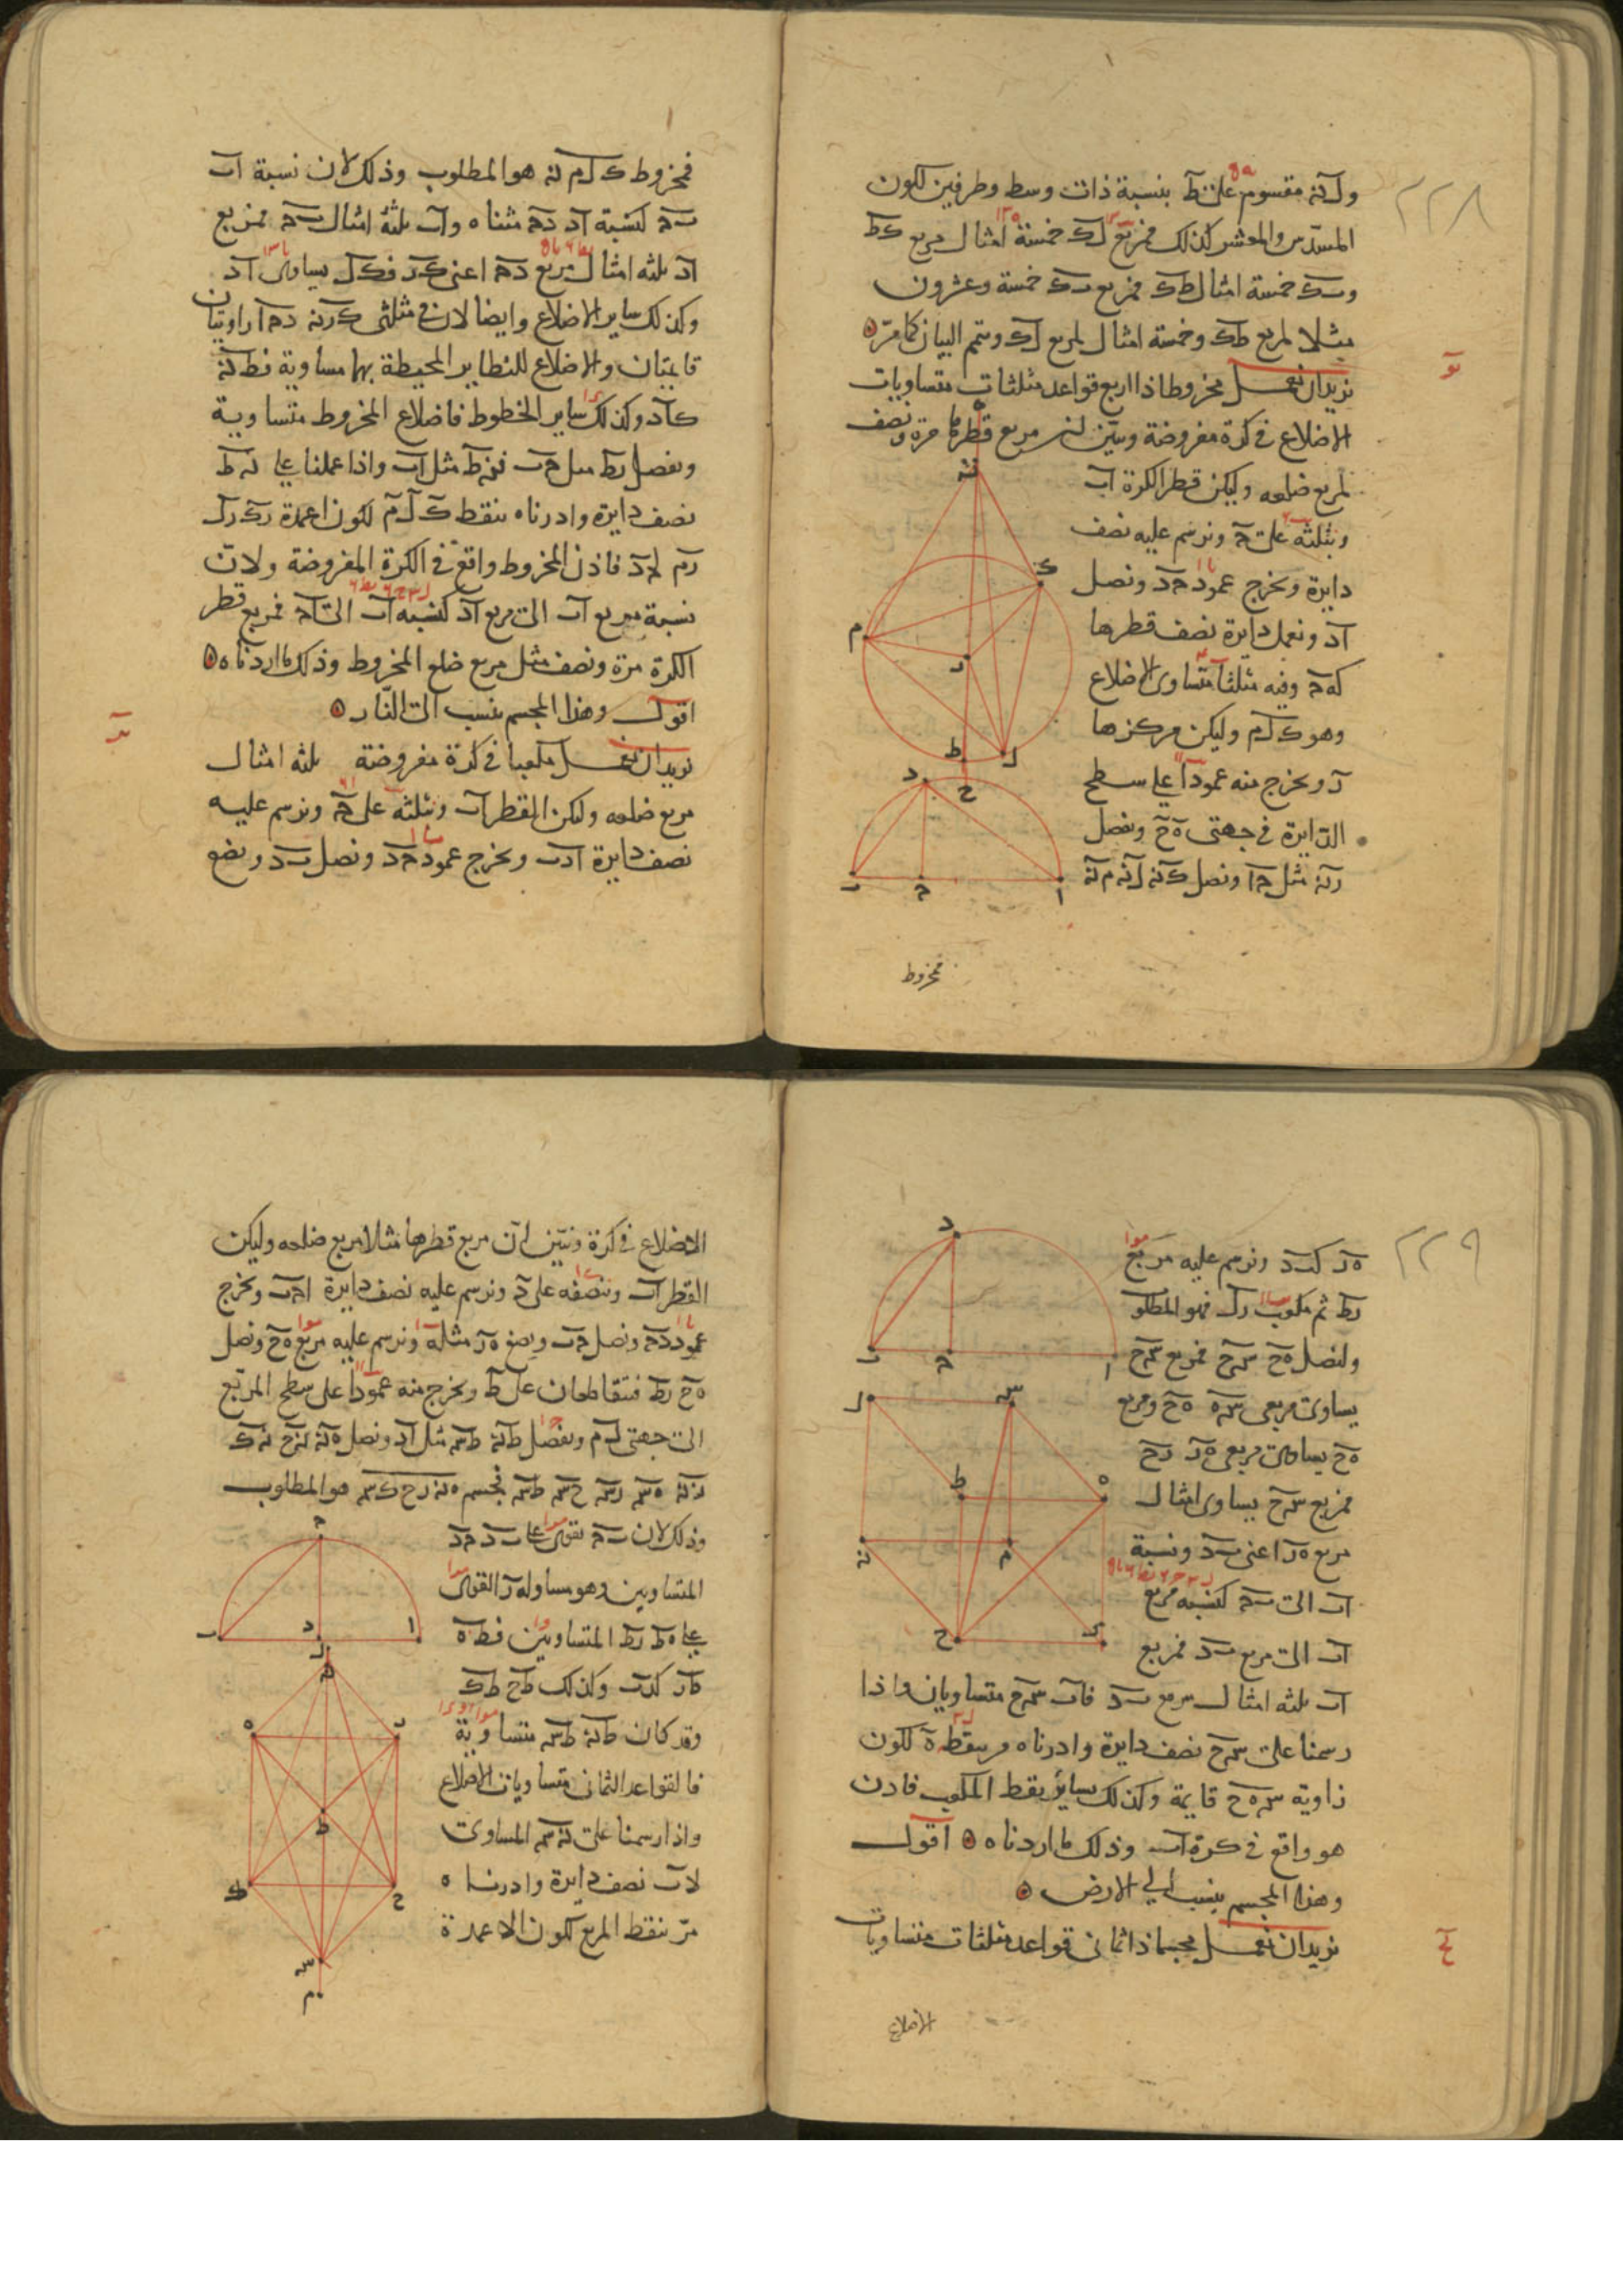 ٢٢٨
ول نه مقسوم على ط بنسبة ذات وسط وطرفين لكون
المسدس والمعشر كذلك فمربع ل ك خمسة امثال مربع ك ط
و ب ك خمسة امثال ط ك فمربع ب ك خمسة وعشرون
مثلا لمربع ط ك وخمسة امثال لمربع ل ك ويتم البيان كما مر ٥
نريد ان نعمل مخروطا ذا اربع قواعد مثلثات متساويات
الاضلاع في كرة مفروضة ونبين ان مربع قطرها مرة ونصف
لمربع ضلعه وليكن قطر الكرة ا ب
ونثلثه على ح ونرسم عليه نصف
دايرة ونخرج عمود ح د ونصل
ا د ونعمل دايرة نصف قطرها
كه ح وفيه مثلثا متساوى الاضلاع
وهو ك ل م وليكن مركزها
ر ونخرج منه عمودا على سطح
الدايرة في جهتى ه ح ونفصل
ر نه مثل ح ا ونصل ك نه ل نه م نه
مخروط
فمخروط ك ل م نه هو المطلوب وذلك لان نسبة ا ب
ب ح كنسبة ا د د ح مثناه و ا ب ثلثة امثال ب ح فمربع
ا د ثلثه امثال مربع د ح اعنى ك ر ف ك ل يساوى ا د
وكذلك ساير الاضلاع وايضا لان في مثلثى ك ر نه د ح ا زاويتان
قايمتان والاضلاع للنظاير المحيطة بها مساوية فط ك نه
كا د وكذلك ساير الخطوط فاضلاع المخروط متساوية
ونفصل ر ط مثل ح ب فنه ط مثل ا ب واذا عملنا على نه ط
نصف دايرة وادرناه بنقط ك ل م لكون اعمدة ر ك ر ل
ر م ل ح د فاذن المخروط واقع في الكرة المفروضة ولان
نسبة مربع ا ب الى مربع ا د كنسبه ا ب الى ا ح فمربع قطر
الكرة مرة ونصف مثل مربع ضلع المخروط وذلك ما اردناه ٥
اقول وهذا المجسم ينسب الى النار ٥
نريد ان نعمل مكعبا في كرة مفروضة ثلثه امثال
مربع ضلعه وليكن القطر ا ب ونثلثه على ح ونرسم عليه
نصف دايرة ا د ب ونخرج عمود ح د ونصل ب د ونضع
٢٢٩
ه ر ك ب د ونرسم عليه مربع
ر ط ثم مكعب ر ل فهو المطلو
ولنصل ه ح س ح فمربع س ح
يساوى مربعى س ه ه ح ومربع
ه ح يساوى مربعى ه ر ر ح
فمربع س ح يساوى امثال
مربع ه ر اعنى ب د ونسبة
ا ب الى ب ح كنسبه مربع
ا ب الى مربع ب د فمربع
ا ب ثلثه امثال مربع ب د فا ب س ح متساويان واذا
رسمنا على س ح نصف دايرة وادرناه مر بنقطه ه لكون
زاوية س ه ح قايمة وكذلك بساير نقط المكعب فاذن
هو واقع في كرة ا ب وذلك ما اردناه ٥ اقول
وهذا المجسم ينسب الى الارض ٥
نريد ان نعمل مجسما ذا ثمانى قواعد مثلثات متساويات
الاضلاع
الاضلاع في كرة ونبين ان مربع قطرها مثلا مربع ضلعه وليكن
القطر ا ب وننصفه على د ونرسم عليه نصف دايرة ا ح ب ونخرج
عمود د ح ونصل ح ب ونضع ه ر مثله ونرسم عليه مربع ه ح ونصل
ه ح ر ط فتقاطعان على ط ونخرج منه عمودا على سطح المربع
الى جهتى ل م ونفصل ط نه ط س مثل ا د ونصل ه نه نه ح نه ك
ر نه ه س ر س ح س ط س فمجسم ه نه ر ح ك س هو المطلوب
وذلك لان ب ح يقوى على ب د ح د
المتساويين وهو مساو له ر القوى
على ه ط ر ط المتساويين فط ه
ط ر ك د ب وكذلك ط ح ط ك
وقد كان ط نه ط س متساوية
فالقواعد الثمانى متساويات الاضلاع
واذا رسمنا على نه س المساوى
لا ب نصف دايرة وادرناه
مر بنقط المربع لكون الاعمدة